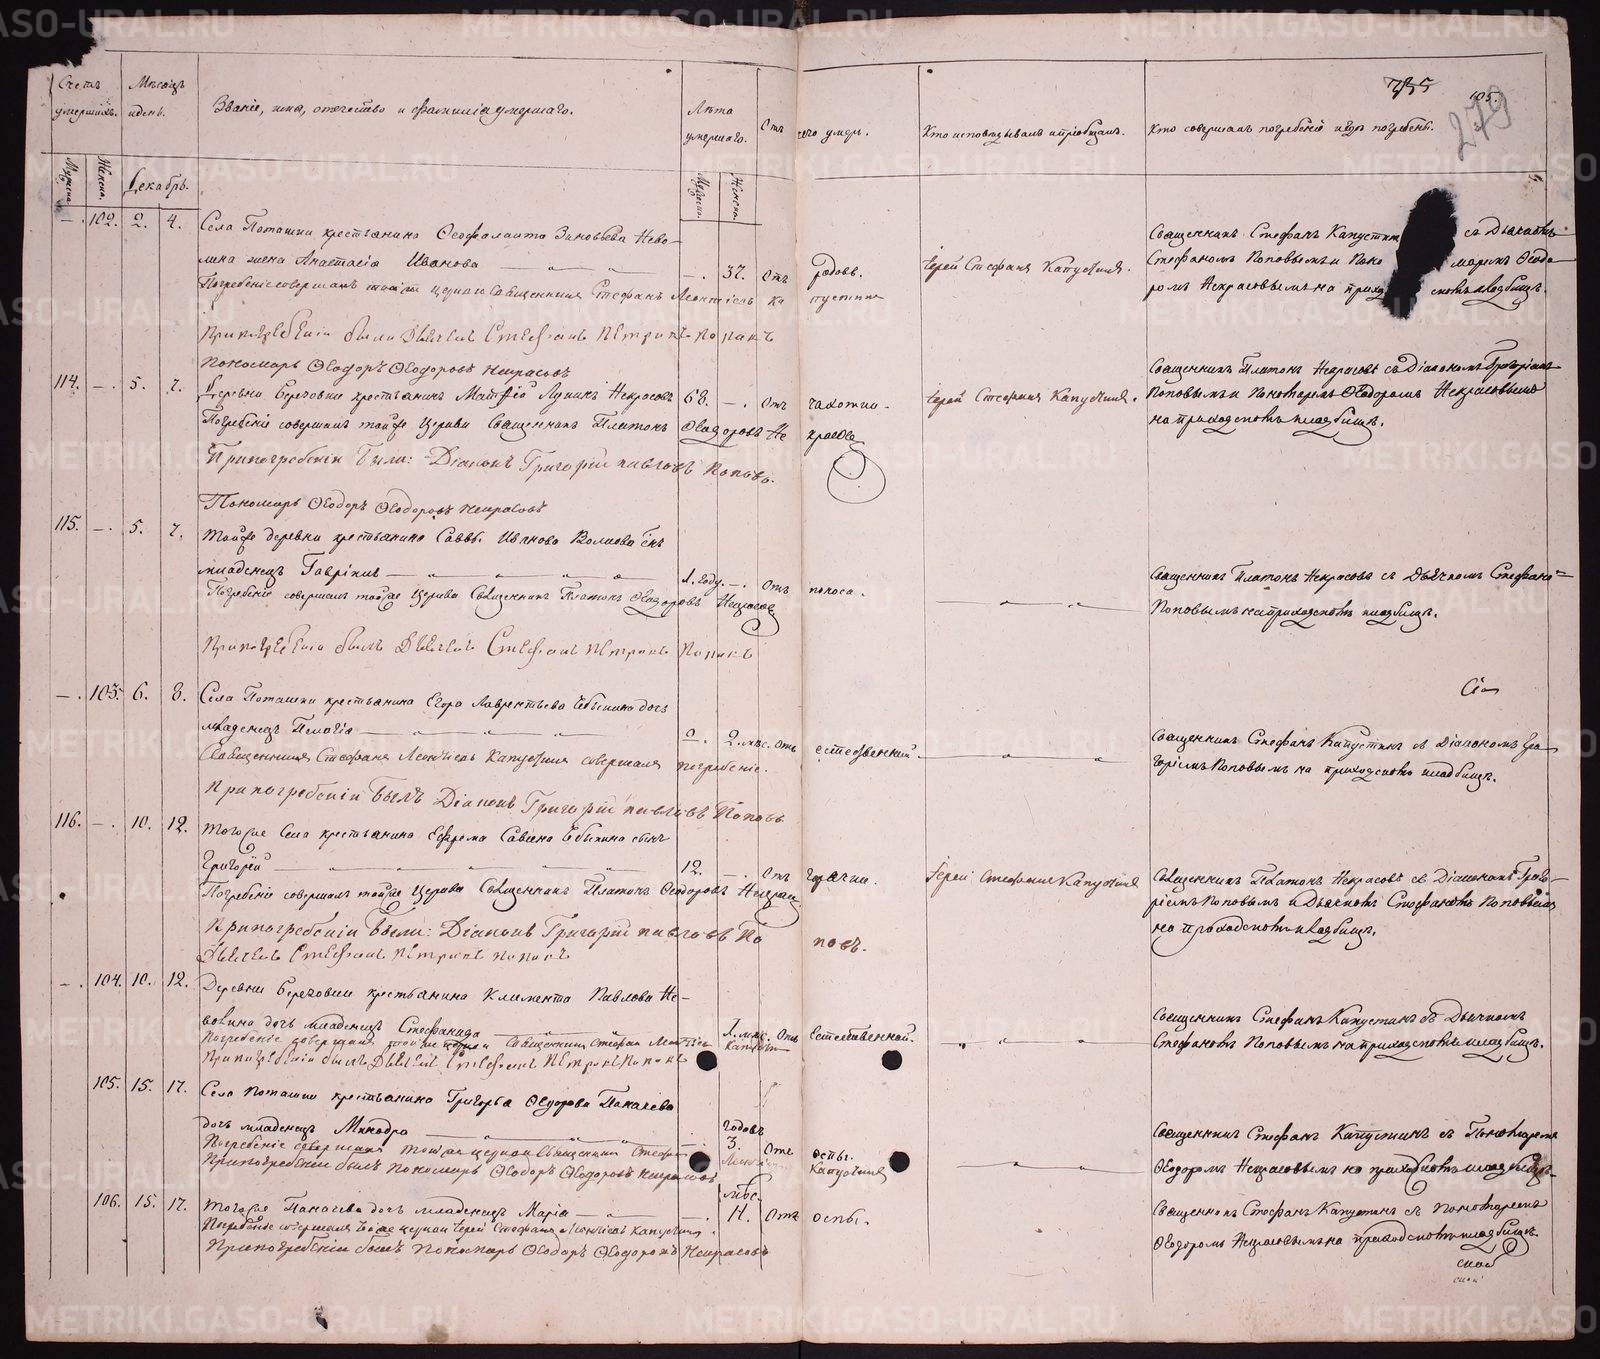 Счетъ умершихъ.
Мѣсяцъ и день.
Званіе, имя, отечество и фамилія умершаго.
Лѣта умершаго.
Отъ чего умеръ.
Кто исповѣдывалъ и пріобщалъ.
Кто совершалъ погребеніе и гдѣ погребенъ.
735
105.
279
Мужеска.
Женска.
Декабрь.
Мужеска.
Женска.
— . 102. 2. 4.
Села Поташки крестьянина Ѳеофилакта Зиновьева Нево-
лина жена Анастасія Иванова — . 37. Отъ родовъ.
Погребеніе совершалъ той церкви Священникъ Стефанъ Леонтіевъ Капустинъ
При погребеніи были Дьячекъ Стефанъ Петровъ Поповъ
Пономарь Ѳеодоръ Ѳеодоровъ Некрасовъ
Іерей Стефанъ Капустинъ.
Священникъ Стефанъ Капустинъ съ Дьячкомъ
Стефаномъ Поповымъ и Поно маремъ Ѳеодо
ромъ Некрасовымъ на приход скомъ кладбищѣ.
114. — . 5. 7.
Деревни Березовки крестьянинъ Матфій Некрасовъ 68. — . Отъ чахотки.
Погребеніе совершалъ тойже Церкви Священникъ Платонъ Ѳеодоровъ Некрасовъ
При погребеніи были: Діаконъ Григорій Павловъ Поповъ.
Пономарь Ѳеодоръ Ѳеодоровъ Некрасовъ
Іерей Стефанъ Капустинъ.
Священникъ Платонъ Некрасовъ съ Діакономъ Григоріемъ
Поповымъ и Пономаремъ Ѳеодоромъ Некрасовымъ
на приходскомъ кладбищѣ.
115. — . 5. 7.
Тойже деревни крестьянина Саввы Иванова сынъ
младенецъ Гавріилъ — 1. году. — . Отъ поноса.
Погребеніе совершалъ тойже Церкви Священникъ Платонъ Ѳеодоровъ Некрасовъ
При погребеніи былъ Дьячекъ Стефанъ Петровъ Поповъ
Священникъ Платонъ Некрасовъ съ Дьячкомъ Стефано-
Поповымъ на приходскомъ кладбищѣ.
— . 103. 6. 8.
Села Поташки крестьянина Егора Лаврентьева дочь
младенецъ Пелагія — 2. мѣс. Отъ естественной.
Священникъ Стефанъ Леонтіевъ Капустинъ совершалъ погребеніе.
При погребеніи былъ Діаконъ Григорій Павловъ Поповъ
Священникъ Стефанъ Капустинъ съ Діакономъ Гри-
горіемъ Поповымъ на приходскомъ кладбищѣ.
116. — . 10. 12.
Тогоже Села крестьянина Ефрема Савина сынъ
Григорій — 12. — . Отъ горячки.
Погребеніе совершалъ тойже Церкви Священникъ Платонъ Ѳеодоровъ Некрасовъ
При погребеніи были: Діаконъ Григорій Павловъ По повъ.
Дьячекъ Стефанъ Петровъ Поповъ
Іерей Стефанъ Капустинъ
Священникъ Платонъ Некрасовъ съ Діакономъ Григо-
ріемъ Поповымъ и Дьячкомъ Стефаномъ Поповымъ
на приходскомъ кладбищѣ.
— . 104. 10. 12.
Деревни Березовки крестьянина Климента Павлова Не-
волина дочь младенецъ Стефанида — 1. мѣс. Отъ Естественной.
Погребеніе совершалъ тойже церкви Священникъ Стефанъ Леонтіевъ Капустинъ
При погребеніи былъ Дьячекъ Стефанъ Петровъ Поповъ
Священникъ Стефанъ Капустинъ съ Дьячкомъ
Стефаномъ Поповымъ на приходскомъ кладбищѣ.
105. 15. 17.
Села Поташки крестьянина Григорья Ѳедорова Пакачева
дочь младенецъ Минодора — 3. годовъ Отъ оспы.
Погребеніе совершалъ тойже церкви Священникъ Стефанъ Леонтіевъ Капустинъ
При погребеніи былъ Пономарь Ѳеодоръ Ѳеодоровъ Некрасовъ
Священникъ Стефанъ Капустинъ съ Пономаремъ
Ѳеодоромъ Некрасовымъ на приходскомъ кладбищѣ.
106. 15. 17.
Тогоже Пакачева дочь младенецъ Марія — мѣс. 11. Отъ оспы.
Погребеніе совершалъ тойже церкви Іерей Стефанъ Леонтіевъ Капустинъ.
При погребеніи былъ Пономарь Ѳеодоръ Ѳеодоровъ Некрасовъ
Священникъ Стефанъ Капустинъ съ Пономаремъ
Ѳеодоромъ Некрасовымъ на приходскомъ кладбищѣ.
METRIKI.GASO-URAL.RU